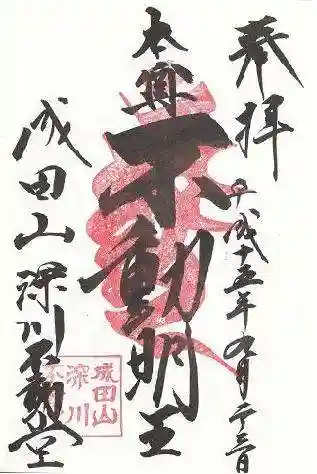 奉拝
平成十五年九月二十三日
本尊
不動明王
成田山深川不動堂
成田山
深川